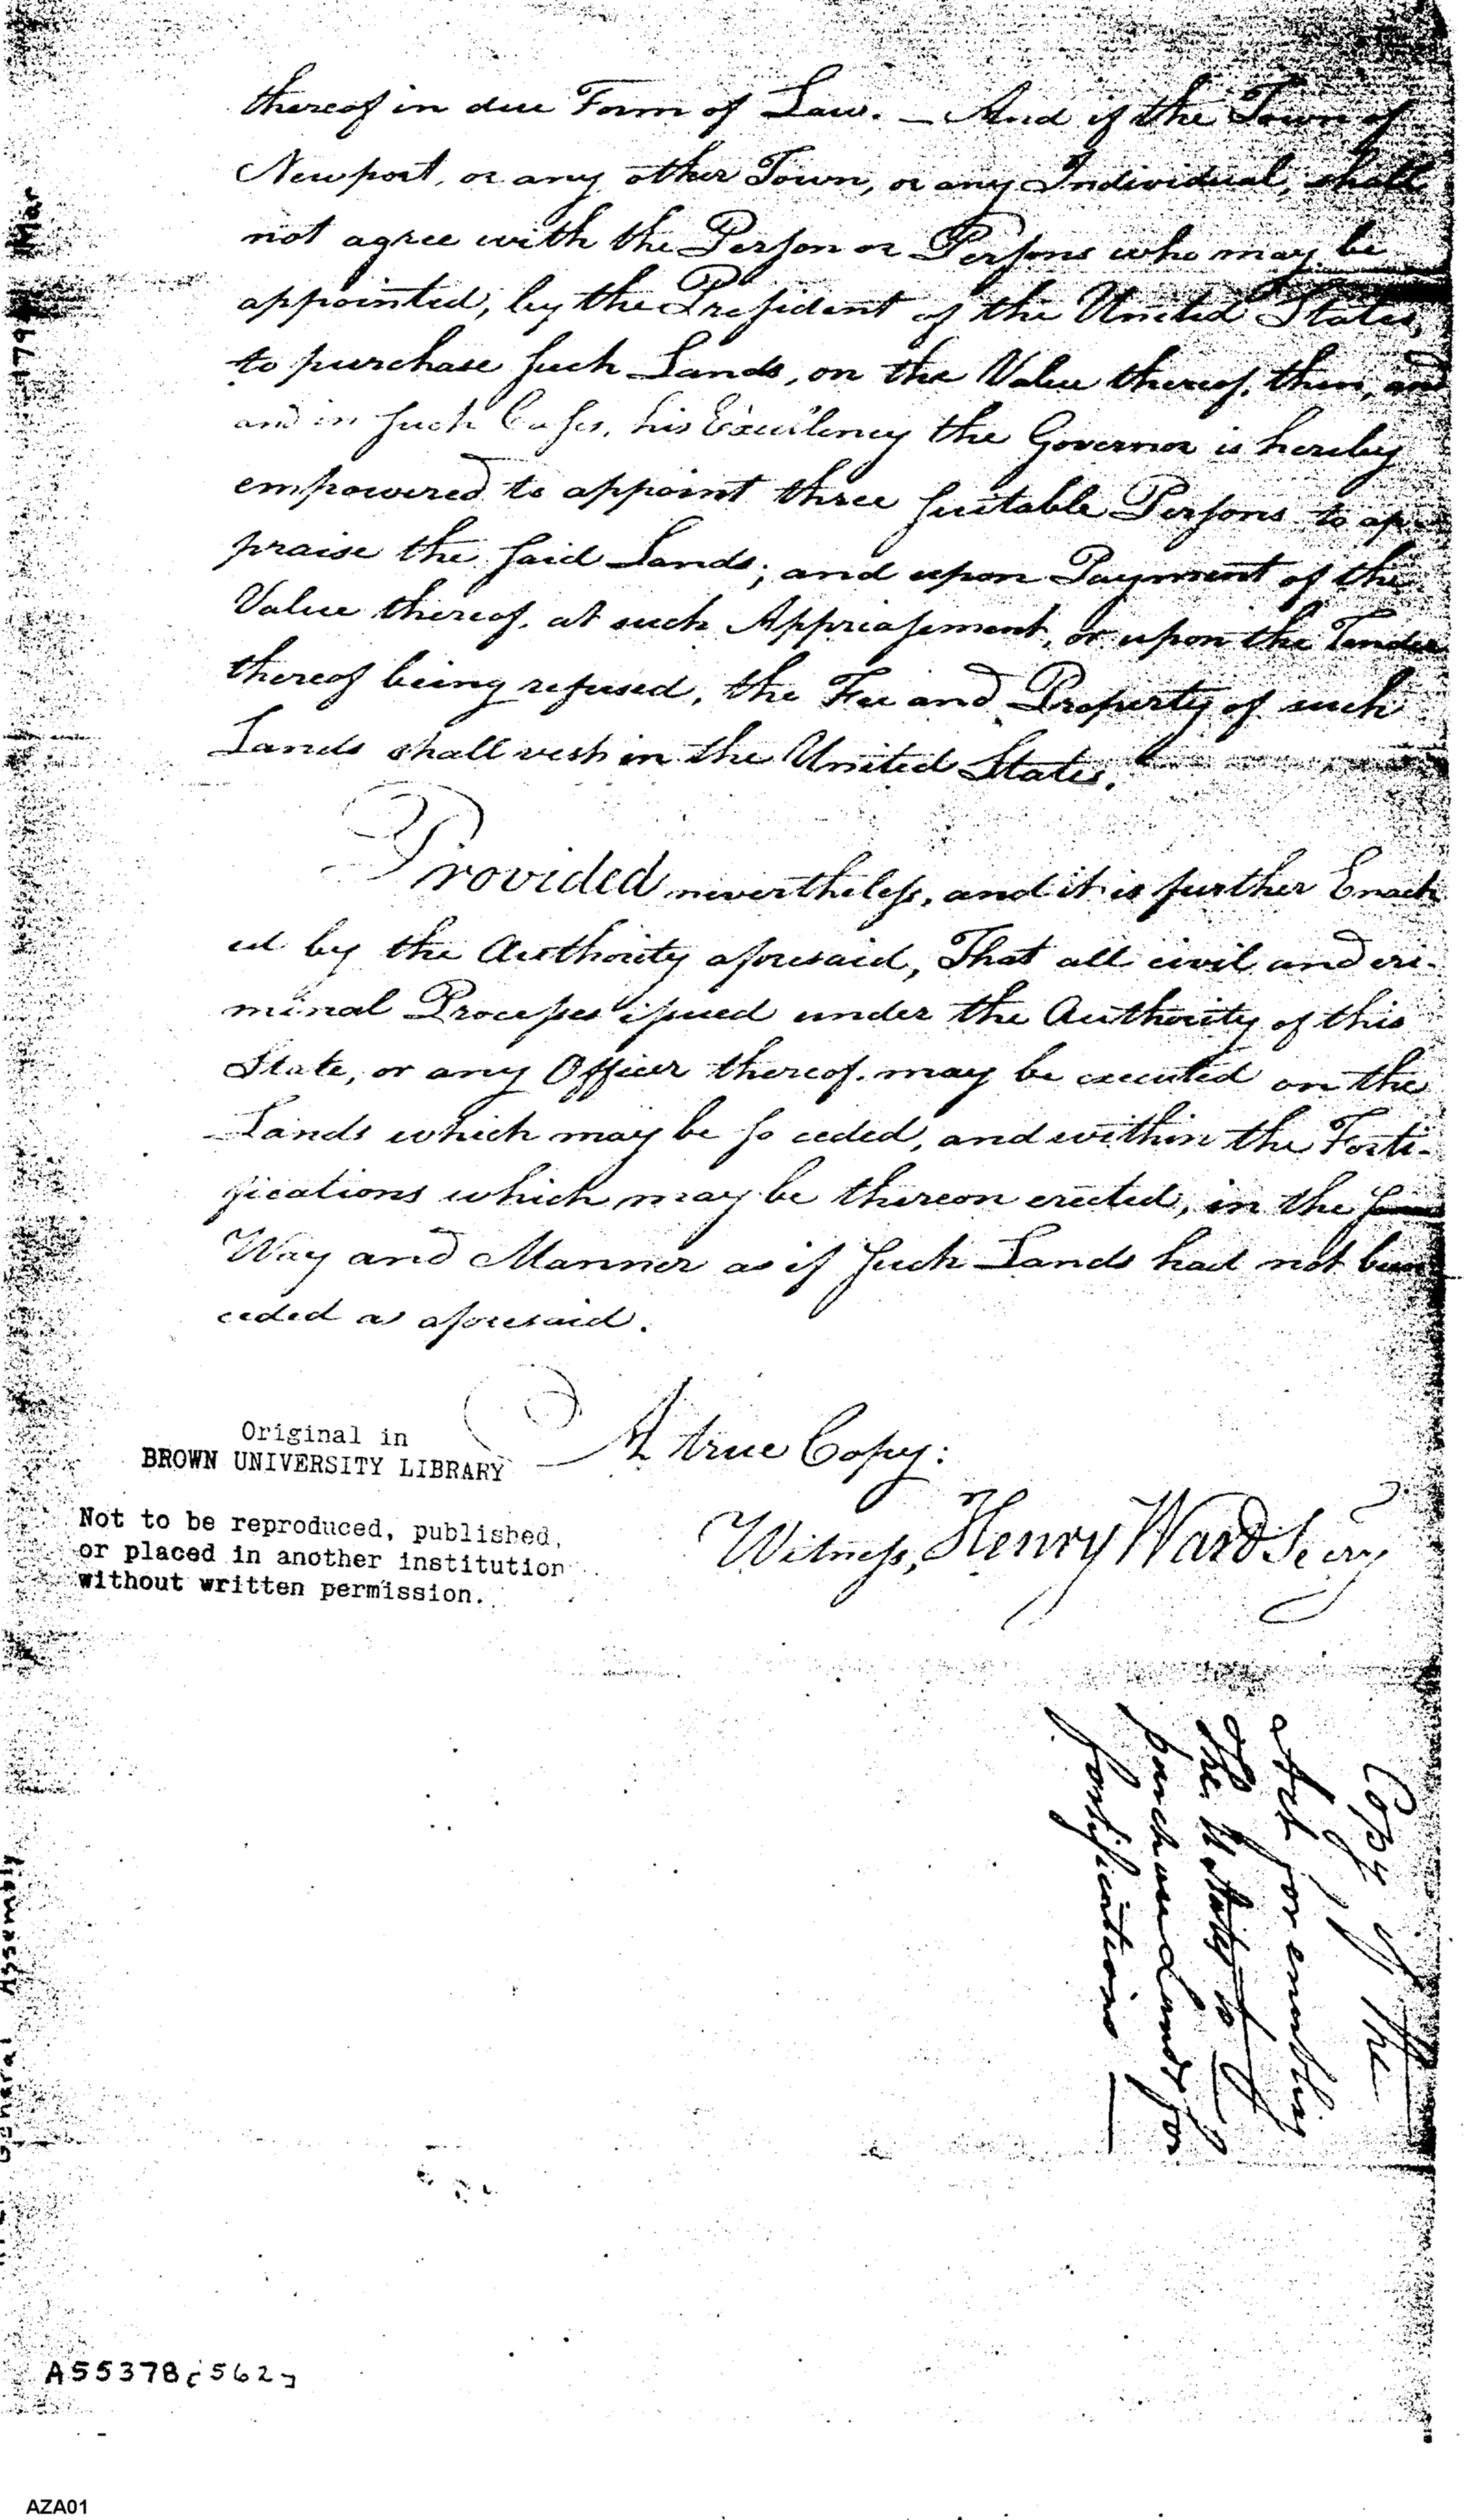 thereof in due Form of Law. — And if the Town of
Newport, or any other Town, or any Individual, shall
not agree with the Person or Persons who may be
appointed, by the President of the United States,
to purchase such Lands, on the Value thereof, then, and
and in such Cases, his Excellency the Governor is hereby
empowered to appoint three suitable Persons to ap-
praise the said Lands; and upon Payment of the
Value thereof, at such Appriasement, or upon the Tender
thereof being refused, the Fee and Property of such
Lands shall vest in the United States.
Provided nevertheless, and it is further Enact
ed by the Authority aforesaid, That all civil and cri-
minal Processes issued under the Authority of this
State, or any Officer thereof, may be executed on the
Lands which may be so ceded, and within the Forti-
fications which may be thereon erected, in the same
Way and Manner as if such Lands had not been
ceded as aforesaid.
A true Copy:
Witness, Henry Ward Secry
Original in
BROWN UNIVERSITY LIBRARY
Not to be reproduced, published,
or placed in another institution
without written permission.
Copy of the
Act for enabling
the U. States to
purchase Lands for
fortifications
Mar
General Assembly
A55378[562]
AZA01